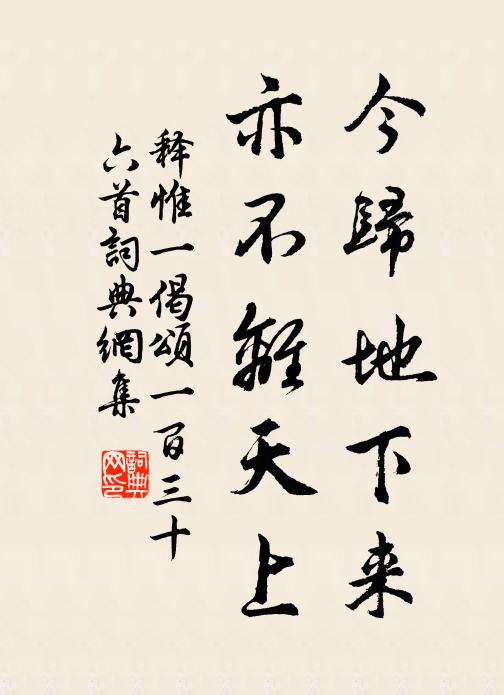 今歸地下来
亦不離天上
释惟一偈頌一百三十
六首詞典網集
詞典
网印